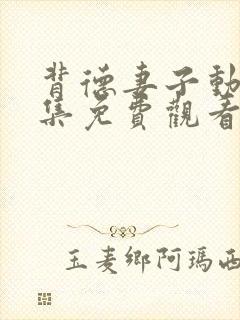 背德妻子動
集免費觀看
玉麦鄉阿瑪西